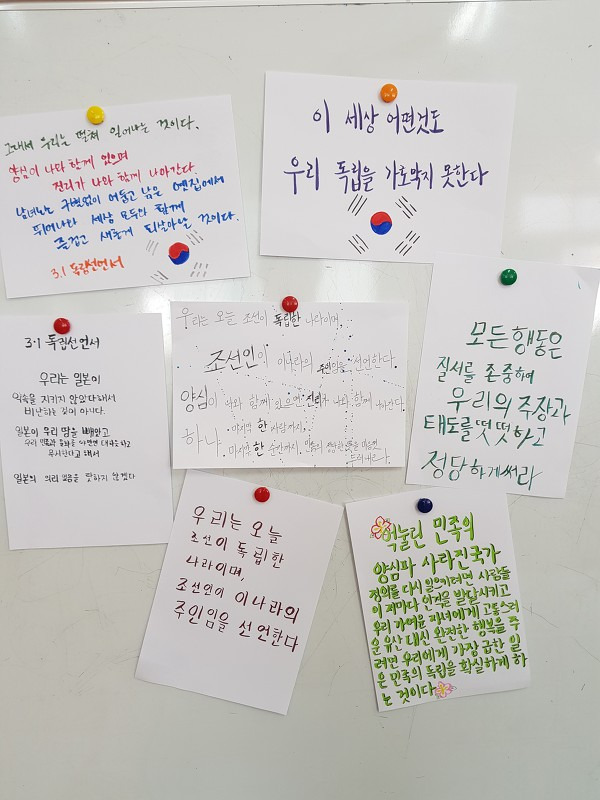 그래서 우리는 떨쳐 일어나는 것이다.
양심이 나와 함께 있으며
진리가 나와 함께 나아간다.
남녀노소 구별없이 어둡고 낡은 옛집에서
뛰쳐나와 세상 모두와 함께
즐겁고 새롭게 되살아날 것이다.
3.1 독립선언서
이 세상 어떤것도
우리 독립을 가로막지 못한다
3·1 독립선언서
우리는 일본이
약속을 지키지 않았다해서
비난하는 것이 아니다.
일본이 우리 땅을 빼앗고
우리 민족을
무시한다고 해서
일본의 의리 없음을 탓하지 않겠다
우리는 오늘 조선이 독립한 나라이며,
조선인이 이나라의 주인임을 선언한다.
양심이 나와 함께 있으면 진리가 나와 함께 나아간다.
하나. 마지막 한 사람까지.
마지막 한 순간까지.
모든행동은
질서를 존중하며
우리의 주장과
태도를 떳떳하고
정당하게써라
우리는 오늘
조선이 독립한
나라이며,
조선인이 이나라의
주인임을 선언한다
억눌린 민족의
양심과 사라진국가
정의를 다시 일으키려면 사람들
이 저마다 인격을 발달시키고
우리 가여운 자녀에게 고통스러
운 유산 대신 완전한 행복을 주
려면 우리에게 가장 급한 일
은 민족의 독립을 확실하게 하
는 것이다